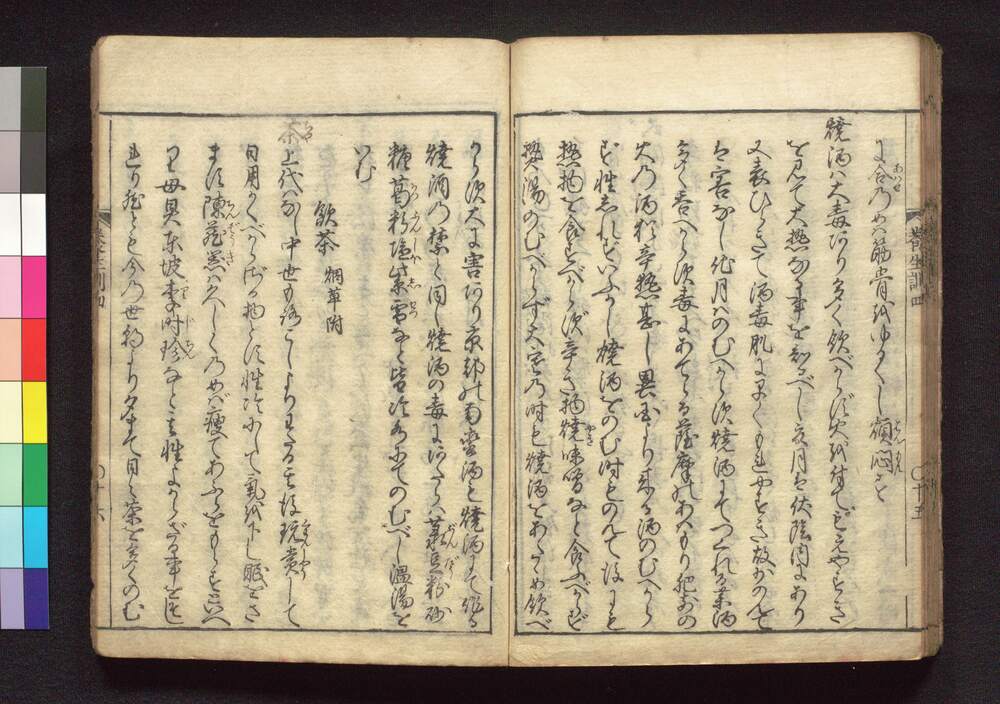 に合のめば筋骨をゆるくし煩悶す
焼酒は大毒あり多く飲べからず火を付てもえやすき
を見て大熱なる事を知るべし夏月は伏陰内にあり
又表ひらきて酒毒肌に早くもれやすき故少のんで
は害なし他月はのむべからず焼酒にてつくれる薬酒
多く呑べからず毒にあてらる薩摩のあはもり肥前の
火の酒猶辛熱甚し異国より来る酒のむべから
ず性しれずいぶかし焼酒をのむ時ものんで後にも
熱物を食すべからず辛き物焼味噌など食ふべからず
熱湯のむべからず大寒の時も焼酒をあたため飲べ
からず大に害あり京都の南蛮酒も焼酒にて作る
焼酒の禁と同じ焼酒の毒にあたらば菉豆粉砂
糖葛粉塩紫雪など皆冷水にてのむべし温湯を
いむ
飲茶 烟草附
茶上代はなし中世もろこしよりわたる其後玩賞して
日用かくべからざる物とす性冷にして気を下し眠をさ
ます陳蔵器は久しくのめば痩てあぶらをもらすといへ
り母炅東坡李時珍など其性よからざる事をそし
れり然ども今の世朝より夕まで日々茶を多くのむ